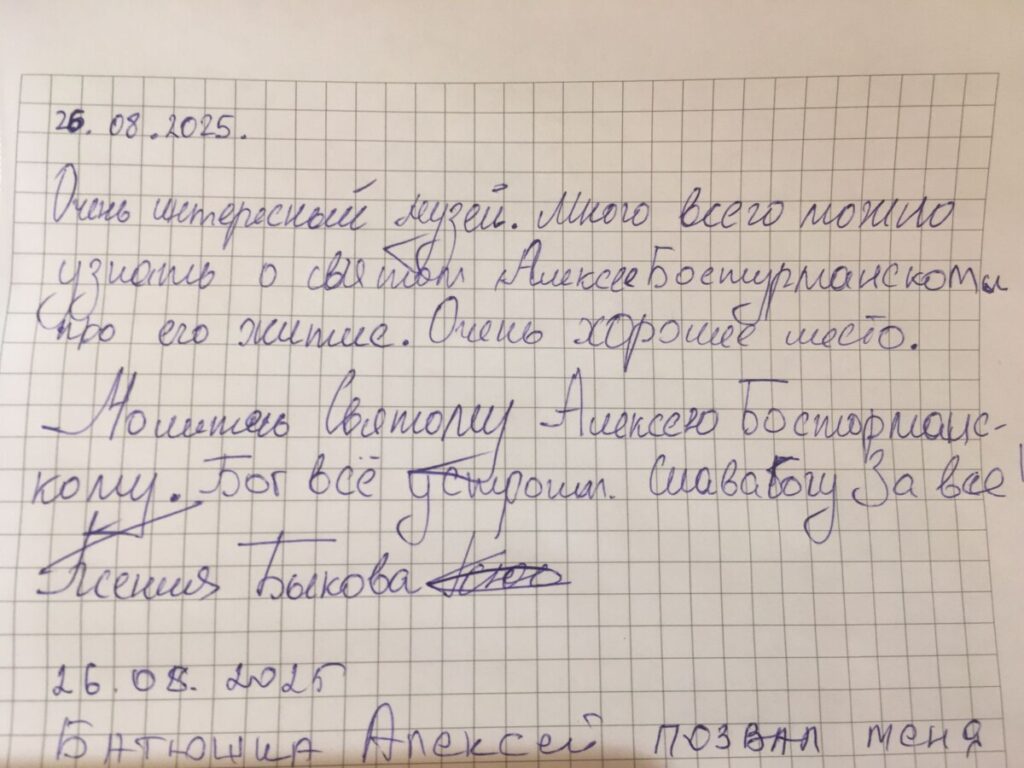 26.08.2025.
Очень интересный музей. Много всего можно
узнать о святом Алексее Бостурманском и
про его житие. Очень хорошее место.
Молитесь Святому Алексею Бостормане-
кому. Бог всё устроит. Слава Богу За все!
Ксения Быкова
26.08.2025
Батюшка Алексей позвал меня